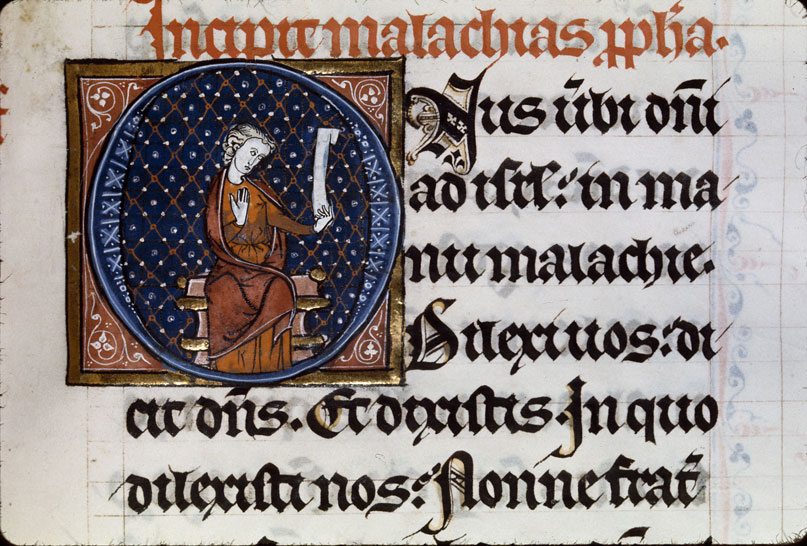 Incipit malachias ꝓph̄a.
Onus ūbi dn̄i
ad isrl̄: in ma
nu malachie.
Dilexi uos: di
cit dn̄s. Et dixistis. In quo
dilexisti nos: Nonne frat̄